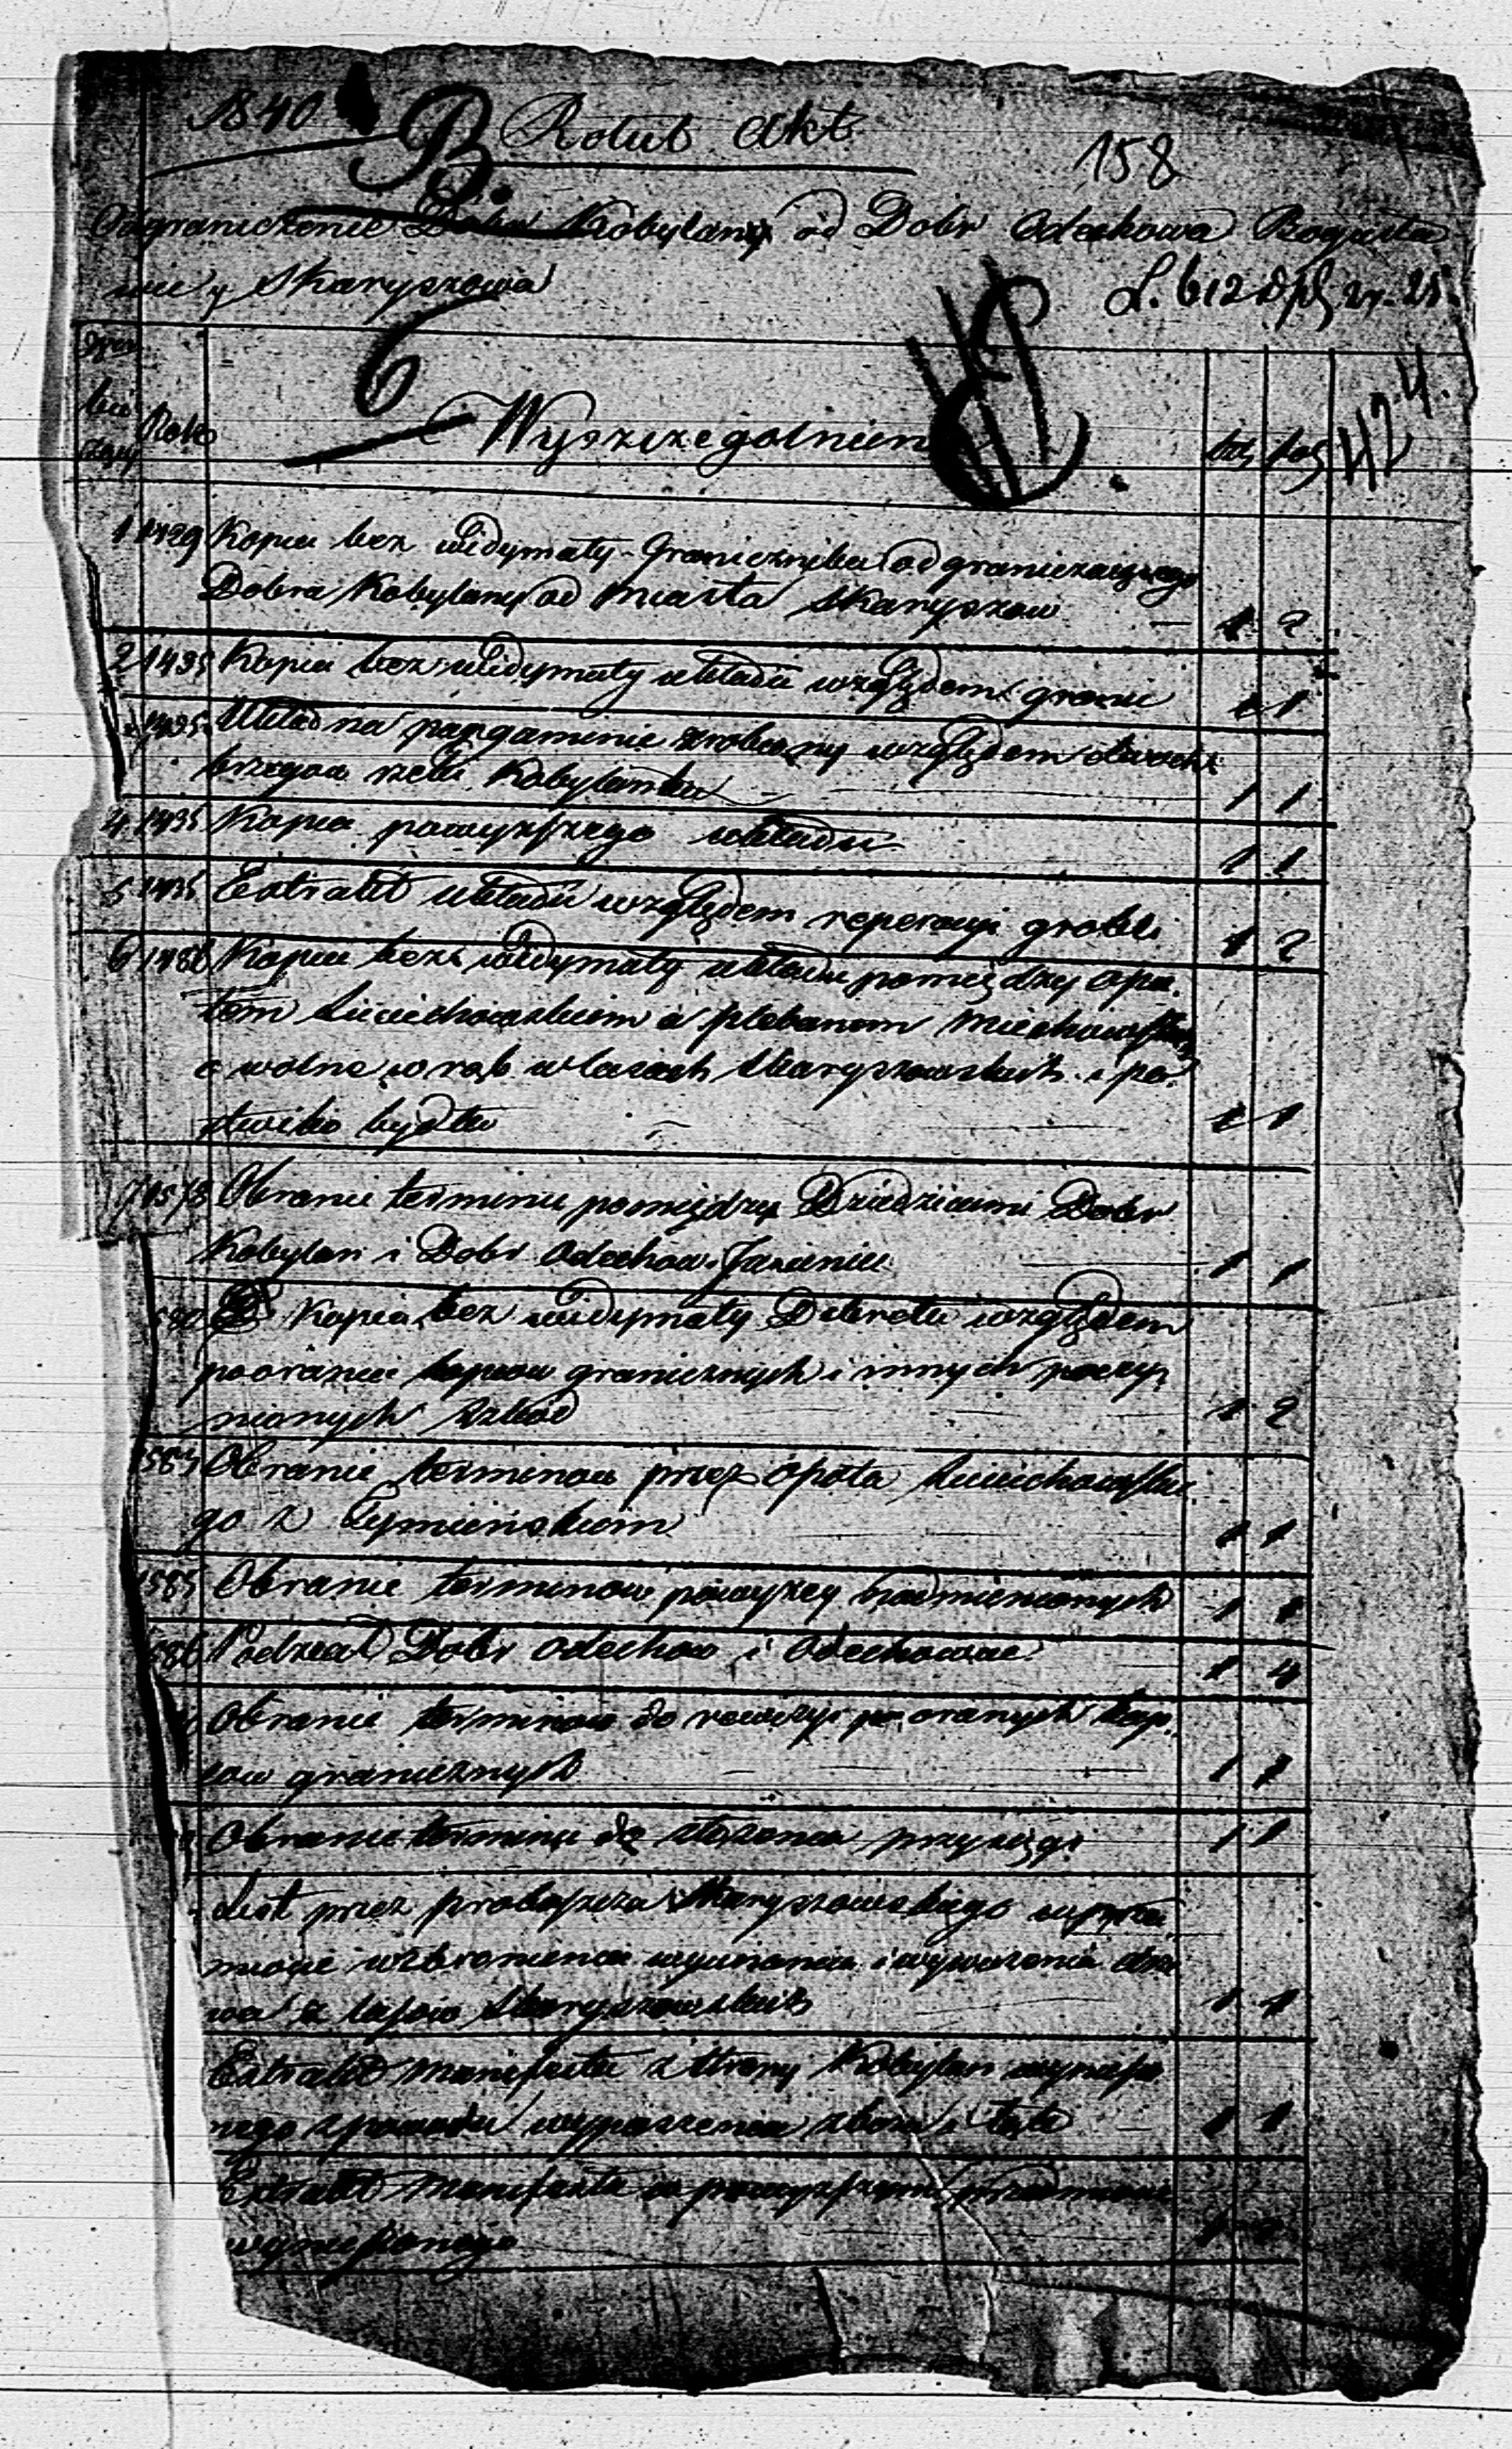 1840 B. Rotul Akt
158
Odgraniczenie Dobr Kobylany od Dobr Odechowa Bogusła
wic y Skaryszowa
L. 612
6
Rok Wyszczegolnienie 424.
1 1429 Kopia bez widymaty Granicznika odgraniczaiącego
Dobra Kobylany od Miasta Skaryszow — 1 2
2 1435 Kopia bez widymaty układu względem granic 1 1
1435 Układ na pargaminie zrobiony względem dwoch
brzegow rzeki Kobylanka — 1 1
4 1435 Kopia powyższego układu 1 1
5 1435 Extrakt układu względem reperacyi grobli 1 2
6 1486 Kopia bez widymaty układu pomiędzy Opa-
tem Sieciechowskiem a plebanem Miechowskim
o wolne wrąb w lasach Skaryszowskich i pa-
stwisko bydła — 1 1
7 1578 Obranie terminu pomiędzy Dziedzicami Dobr
Kobylan i Dobr Odechow — 1 1
580 Kopia bez widymaty Dekretu względem
poorania kopcow granicznych i innych poczy-
nionych szkod — 1 2
1584 Obranie terminow przez Opata Sieciechowskie-
go z Tyminskiem 1 1
1585 Obranie terminow powyzey nadmienionych 1 1
586 Podział Dobr Odechow i Odechowiec 1 4
Obranie terminow do rewizyi po oranych kop-
cow granicznych — 1 1
Obranie terminu do złożenia przysięgi 1 1
List przez proboszcza Skaryszowskiego w przed
miocie wzbronienia wycinania i wywożenia drze
wa z lasow Skaryszowskich 1 1
Extrakt Manifestu z strony Kobylan wyniesio
nego z powodu wypaszenia zboża i łąk — 1 1
Extrakt Manifestu w powyższym przedmiocie
wyniesionego 1